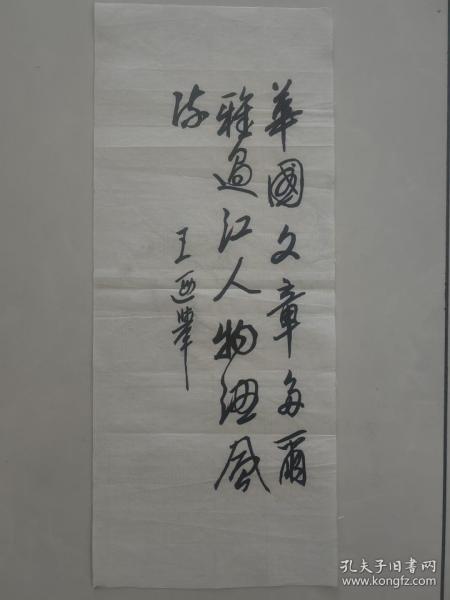 華國文章多爾
雅過江人物總風
流
王遐舉
孔夫子旧书网
www.kongfz.com